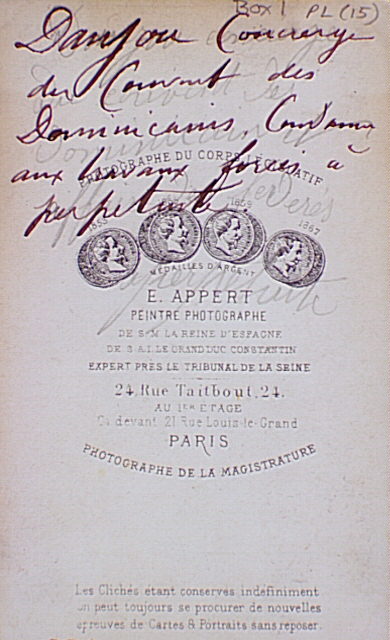 Box 1 PL (15)
Danjou Concierge
du Couvent des
Dominicains, Condamné
aux travaux forcés à
perpetuité
PHOTOGRAPHE DU CORPS LÉGISLATIF
1859
1867
MÉDAILLES D'ARGENT
E. APPERT
PEINTRE PHOTOGRAPHE
DE S.M. LA REINE D'ESPAGNE
DE S.A.I. LE GRAND DUC CONSTANTIN
EXPERT PRÈS LE TRIBUNAL DE LA SEINE
24, Rue Taitbout, 24.
AU 1ER ETAGE
devant 21 Rue Louis-le-Grand
PARIS
PHOTOGRAPHE DE LA MAGISTRATURE
Les Clichés etant conservés indéfiniment
on peut toujours se procurer de nouvelles
epreuves de Cartes & Portraits sans reposer.